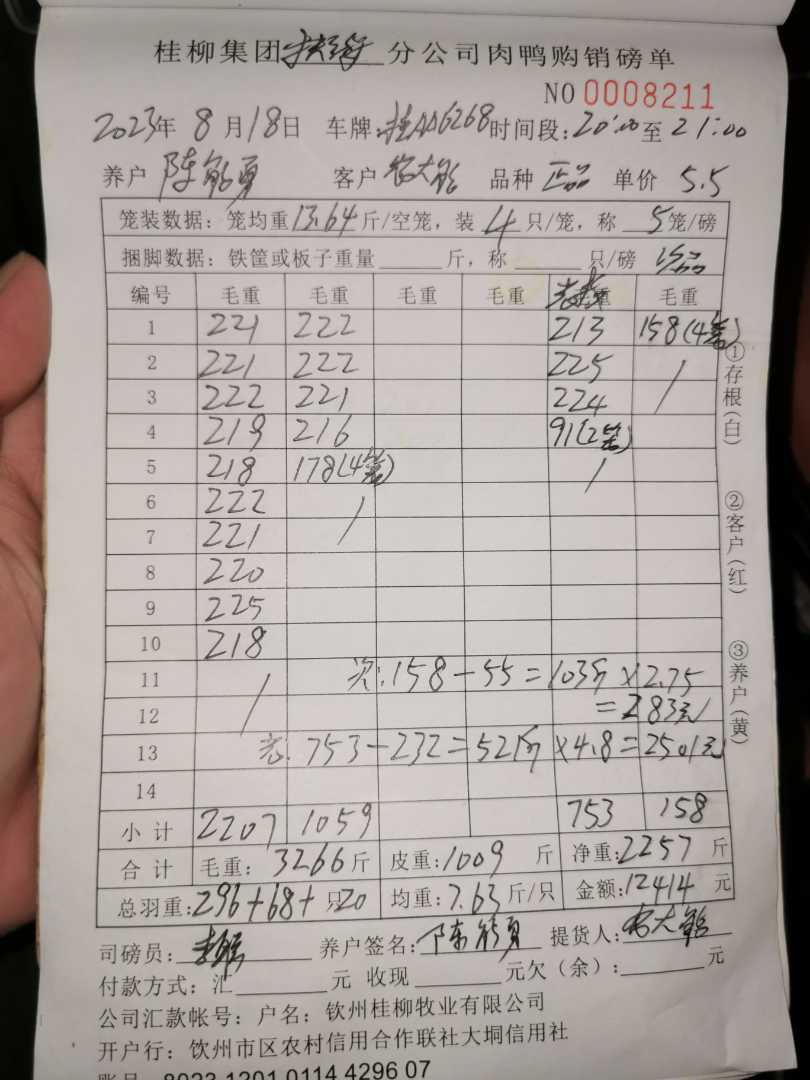 桂柳集团 分公司肉鸭购销磅单
NO 0008211
2023年 8月18日 车牌:桂AD6268 时间段:20:00至21:00
养户 陈能勇 客户 大 品种 正品 单价 5.5
笼装数据:笼均重13.64斤/空笼,装4只/笼,称5笼/磅
捆脚数据:铁筐或板子重量 斤,称 只/磅 次品
编号 毛重 毛重 毛重 毛重 毛重 毛重
1 221 222 213 158(4笼)
2 221 222 225 /
3 222 221 224
4 219 216 91(2笼)
5 218 178(4笼) /
6 222 /
7 221
8 220
9 225
10 218
11 / 次:158-55=103斤×2.75
12 =283元
13 老:753-232=521斤×4.8=2501元
14
小计 2207 1059 753 158
合计 毛重:3266斤 皮重:1009斤 净重:2257斤
总羽重:296+68+只20 均重:7.63斤/只 金额:12414元
司磅员: 养户签名:陈能勇 提货人: 大
付款方式:汇 元 收现 元欠(余): 元
公司汇款帐号:户名:钦州桂柳牧业有限公司
开户行:钦州市区农村信用合作联社大垌信用社
账号 8023 1201 0114 4296 07
①存根(白)
②客户(红)
③养户(黄)